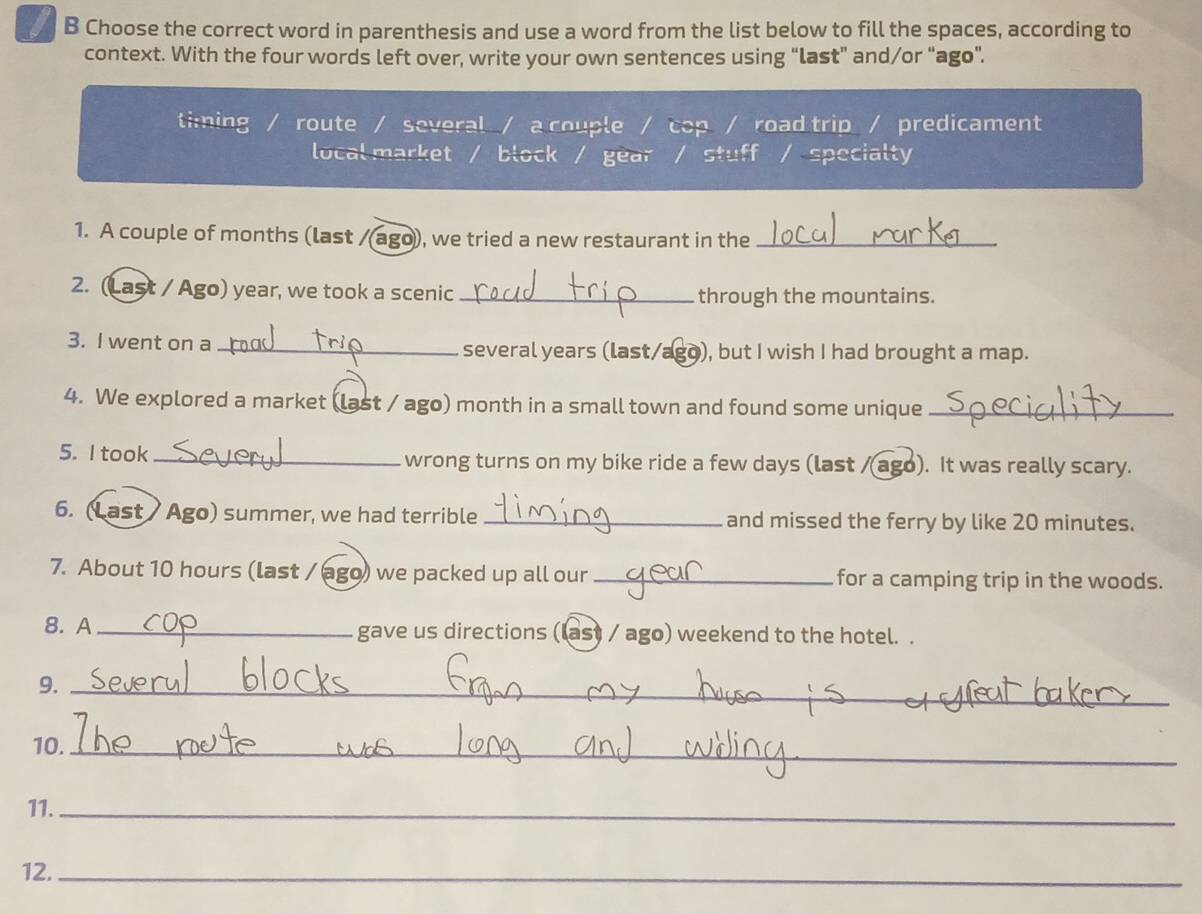 B Choose the correct word in parenthesis and use a word from the list below to fill the spaces, according to
context. With the four words left over, write your own sentences using "last" and/or "ago".
timing / route / several / a couple / cop / road trip / predicament
local market / block / gear / stuff / specialty
1. A couple of months (last / ago), we tried a new restaurant in the local marke.
2. (Last / Ago) year, we took a scenic road trip through the mountains.
3. I went on a road trip several years (last/ago), but I wish I had brought a map.
4. We explored a market (last / ago) month in a small town and found some unique Speciality
5. I took Several wrong turns on my bike ride a few days (last / ago). It was really scary.
6. (Last / Ago) summer, we had terrible timing and missed the ferry by like 20 minutes.
7. About 10 hours (last / ago) we packed up all our gear for a camping trip in the woods.
8. A cop gave us directions (last / ago) weekend to the hotel. .
9. Several blocks from my is a great bakery
10. The route was long and
11.
12.